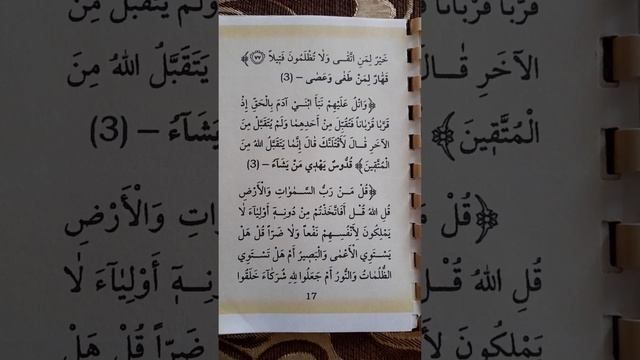 خَيْرٌ لِمَنِ اتَّقَىٰ وَلَا تُظْلَمُونَ فَتِيلاً ﴿٧٧﴾
قَهَّارٌ لِمَنْ طَغَى وَعَصَى – (3)
﴿وَاتْلُ عَلَيْهِمْ نَبَأَ ابْنَيْ آدَمَ بِالْحَقِّ إِذْ
قَرَّبَا قُرْبَاناً فَتُقُبِّلَ مِنْ أَحَدِهِمَا وَلَمْ يُتَقَبَّلْ مِنَ
الْآخَرِ قَالَ لَأَقْتُلَنَّكَ قَالَ إِنَّمَا يَتَقَبَّلُ اللهُ مِنَ
الْمُتَّقِينَ﴾ قُدُّوسٌ يَهْدِي مَنْ يَشَاءُ – (3)
﴿قُلْ مَنْ رَبُّ السَّمٰوَاتِ وَالْأَرْضِ
قُلِ اللهُ قُلْ أَفَاتَّخَذْتُمْ مِنْ دُونِهِ أَوْلِيَاءَ لَا
يَمْلِكُونَ لِأَنْفُسِهِمْ نَفْعاً وَلَا ضَرّاً قُلْ هَلْ
يَسْتَوِي الْأَعْمَى وَالْبَصِيرُ أَمْ هَلْ تَسْتَوِي
الظُّلُمَاتُ وَالنُّورُ أَمْ جَعَلُوا لِلهِ شُرَكَاءَ خَلَقُوا
17